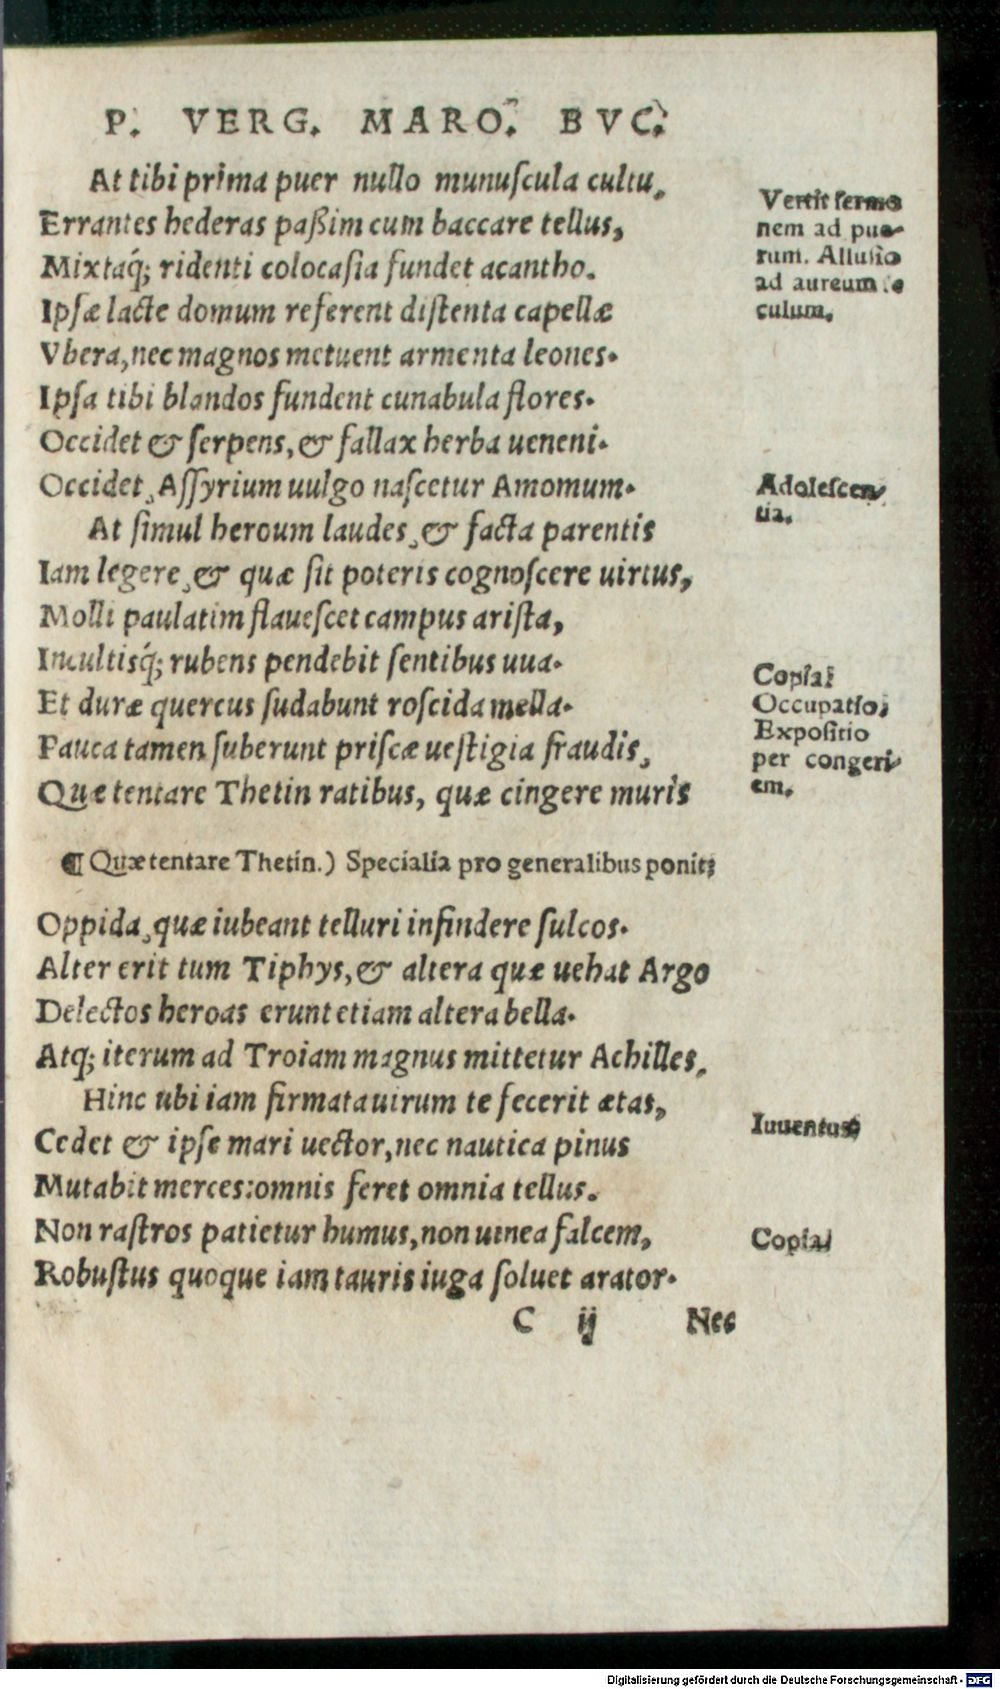 P. VERG. MARO. BVC.
At tibi prima puer nullo munuscula cultu,
Errantes hederas paßim cum baccare tellus,
Mixtaq́; ridenti colocasia fundet acantho.
Ipsæ lacte domum referent distenta capellæ
Vbera, nec magnos metuent armenta leones.
Ipsa tibi blandos fundent cunabula flores.
Occidet & serpens, & fallax herba ueneni.
Occidet, Assyrium uulgo nascetur Amomum.
At simul heroum laudes, & facta parentis
Iam legere, & quæ sit poteris cognoscere uirtus,
Molli paulatim flauescet campus arista,
Incultisq́; rubens pendebit sentibus uua.
Et duræ quercus sudabunt roscida mella.
Pauca tamen suberunt priscæ uestigia fraudis,
Quæ tentare Thetin ratibus, quæ cingere muris
¶ Quæ tentare Thetin.) Specialia pro generalibus ponit;
Oppida, quæ iubeant telluri infindere sulcos.
Alter erit tum Tiphys, & altera quæ uehat Argo
Delectos heroas erunt etiam altera bella.
Atq; iterum ad Troiam magnus mittetur Achilles,
Hinc ubi iam firmata uirum te fecerit ætas,
Cedet & ipse mari uector, nec nautica pinus
Mutabit merces: omnis feret omnia tellus.
Non rastros patietur humus, non uinea falcem,
Robustus quoque iam tauris iuga soluet arator.
C ij Nec
Vertit sermo
nem ad pue-
rum. Allusio
ad aureum
culum.
Adolescen-
tia.
Copia.
Occupatio.
Expositio
per congeri-
em.
Iuuentus
Copia
Digitalisierung gefördert durch die Deutsche Forschungsgemeinschaft - DFG